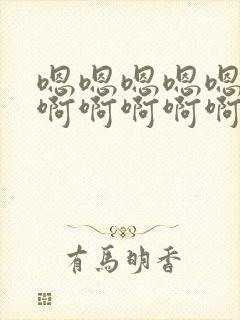 嗯嗯嗯嗯嗯
啊啊啊啊啊
有馬明香